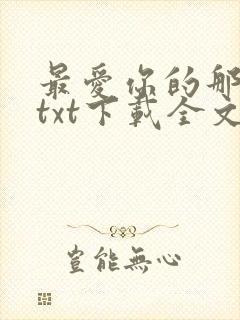 最愛你的那
txt下載全文
豈能無心